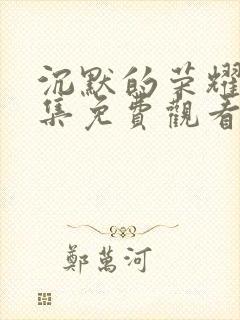 沉默的荣耀
集免費觀看
鄭萬河